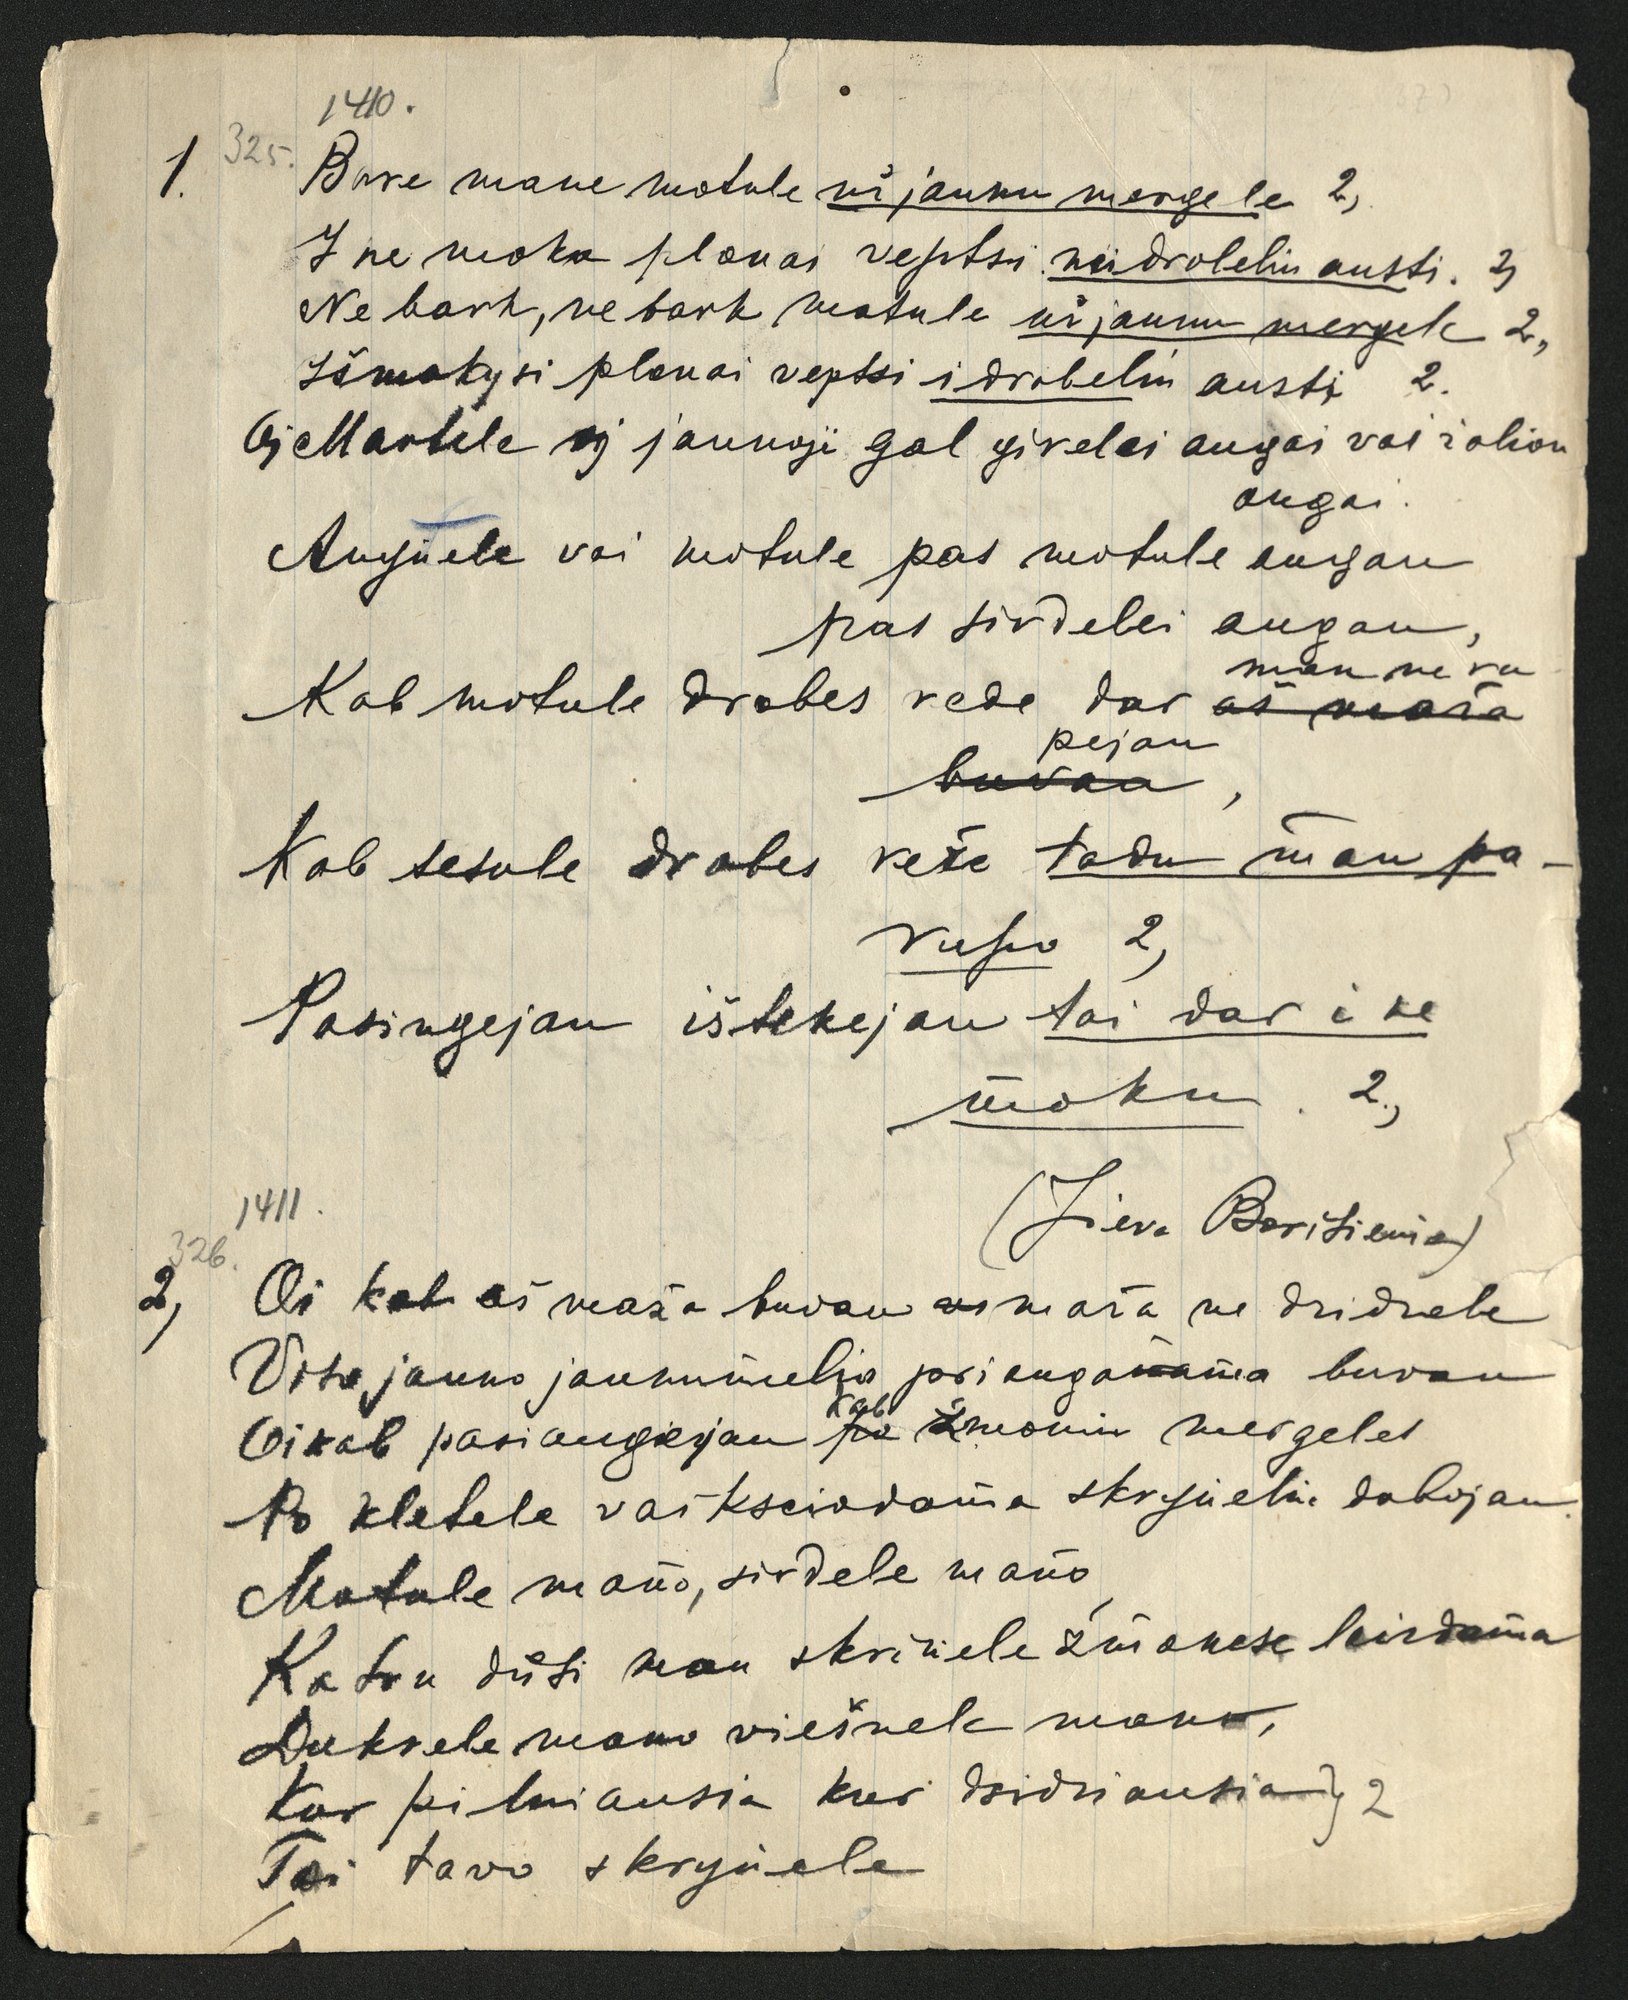 1410.
1. 325. Bare mane motule už jaunu mergele 2,
I ne moku plonai veptsi nei drobeliu austi. 2,
Ne bark, ne bark motule už jaunu mergele 2,,
Išmokysi plonai veptsi i drobeliu austi 2.
Oj Martele oj jaunoji gol girelei augai vai žolion
augai.
Auguele vai motule pas motule augau
pas sirdelei augau,
Kab motule drobes rede dar aš maža man ne ru
buvau pejau,
Kab sesule drobes reže tadu man pa-
rupo 2,
Pasingejau ištekejau tai dar i ne
moku. 2.,
(Jieva Barisienia)
1411.
326.
2, Oi kab aš maža buvau maža ne didžele
Visa jauno jaunumelio priaugamama buvau
Oi kab pasiangiejau po kab žmoniu mergeles
Po kletele vaiksciodama skryneliu dabojau.
Motule mano, sirdele mano,
Katru dusi man skrinele žmonese leisdama
Dukrele mano viešnele mano,
Kur pilniausia kur didžiausia } 2
Tai tavo skrynele